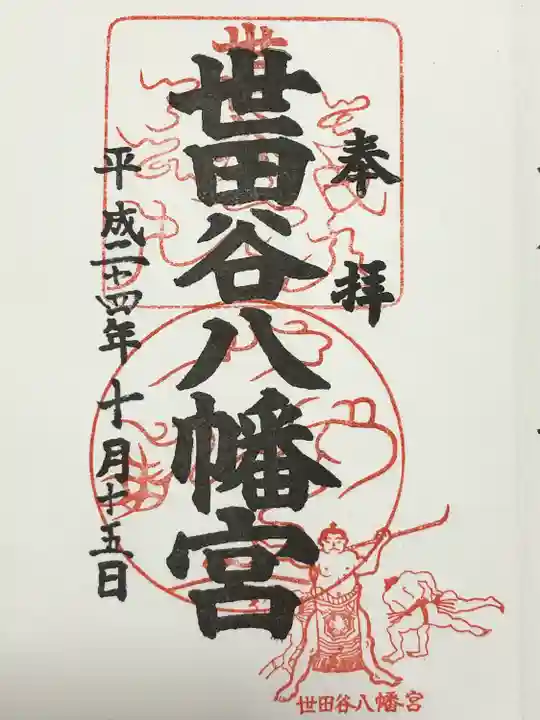 奉拝
世田谷八幡宮
平成二十四年十月十五日
世田谷八幡宮